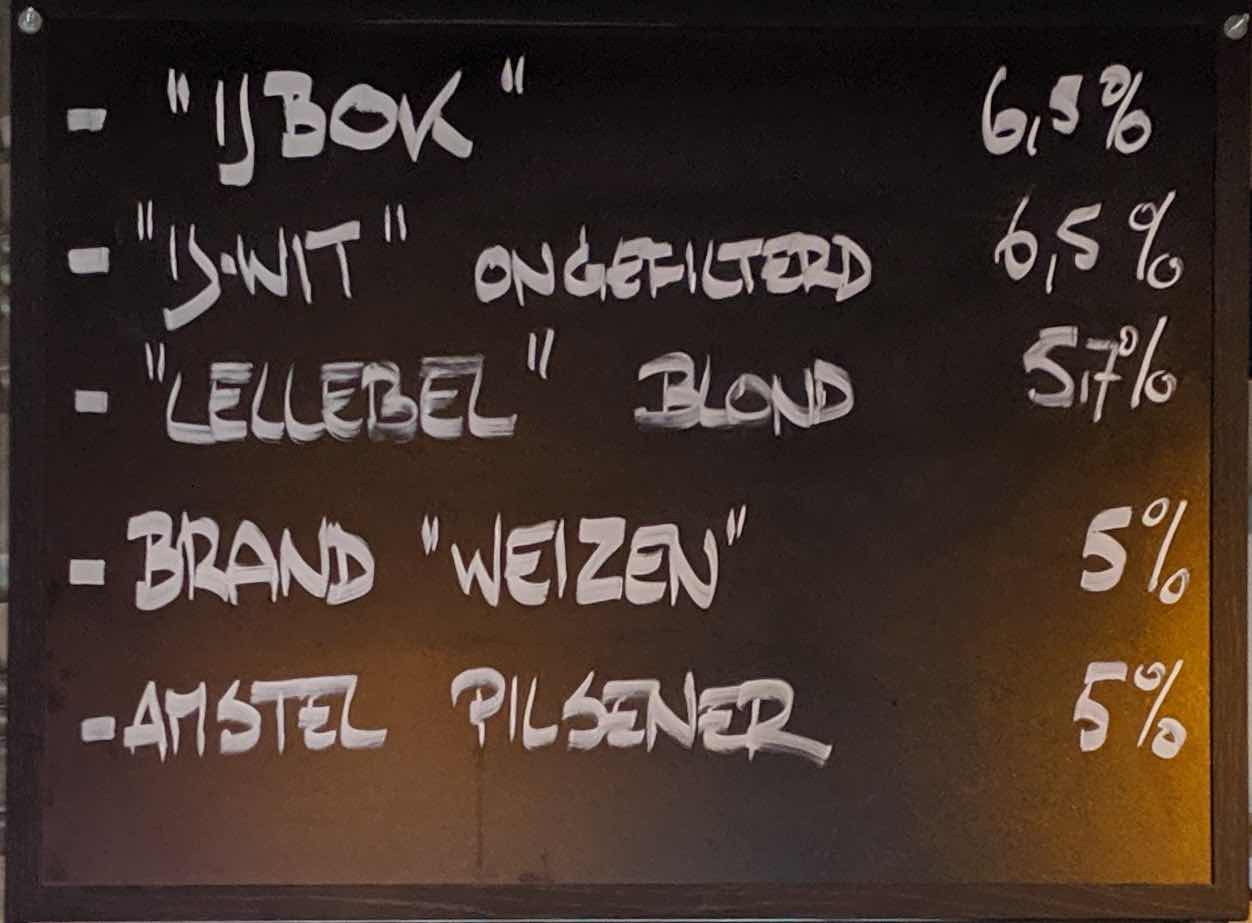 - "IJBOK" 6,5%
- "IJ-WIT" ONGEFILTERD 6,5%
- "LELLEBEL" BLOND 5,7%
- BRAND "WEIZEN" 5%
- AMSTEL PILSENER 5%